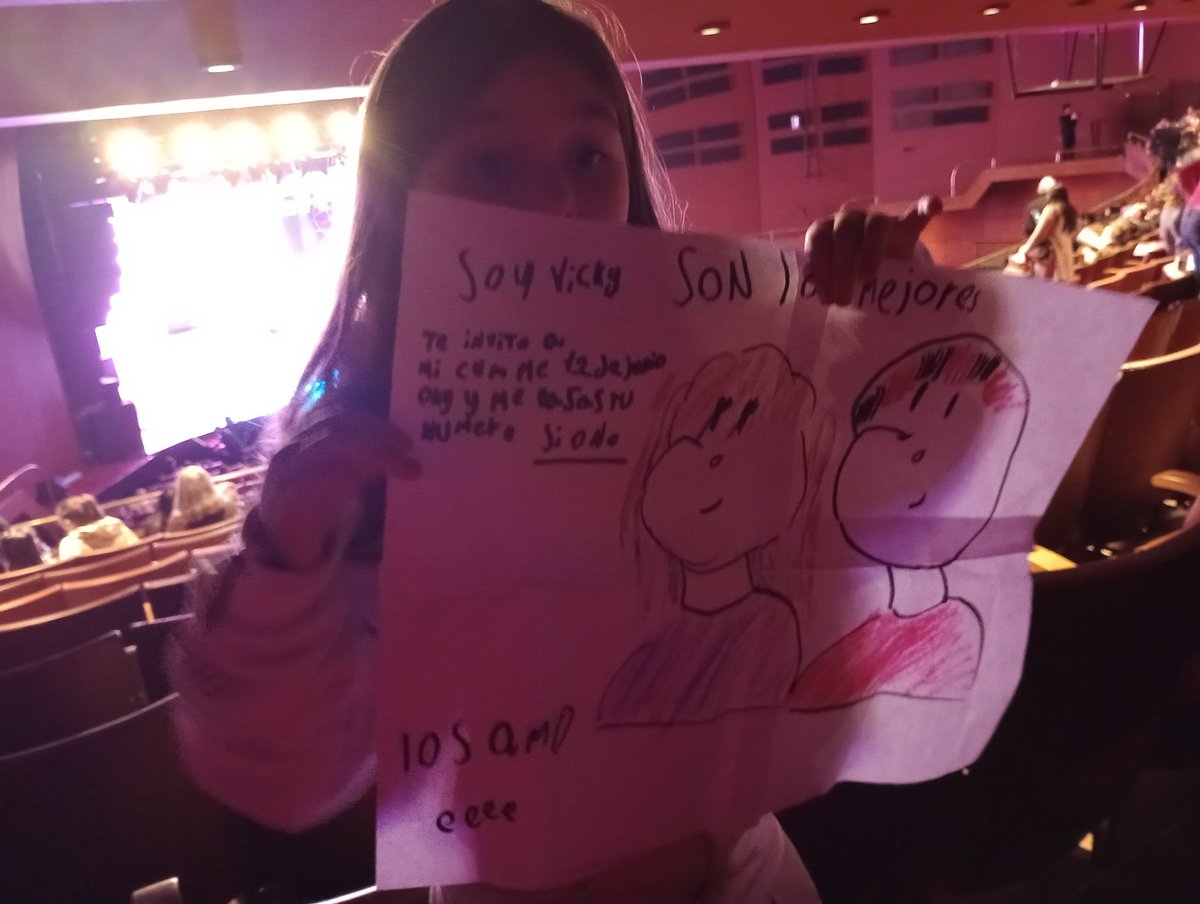 Soy Vicky SON mejores
Te invito a
Mi cumple 12 de Junio
y me pasas tu
numero Si o no
los amo
eeee